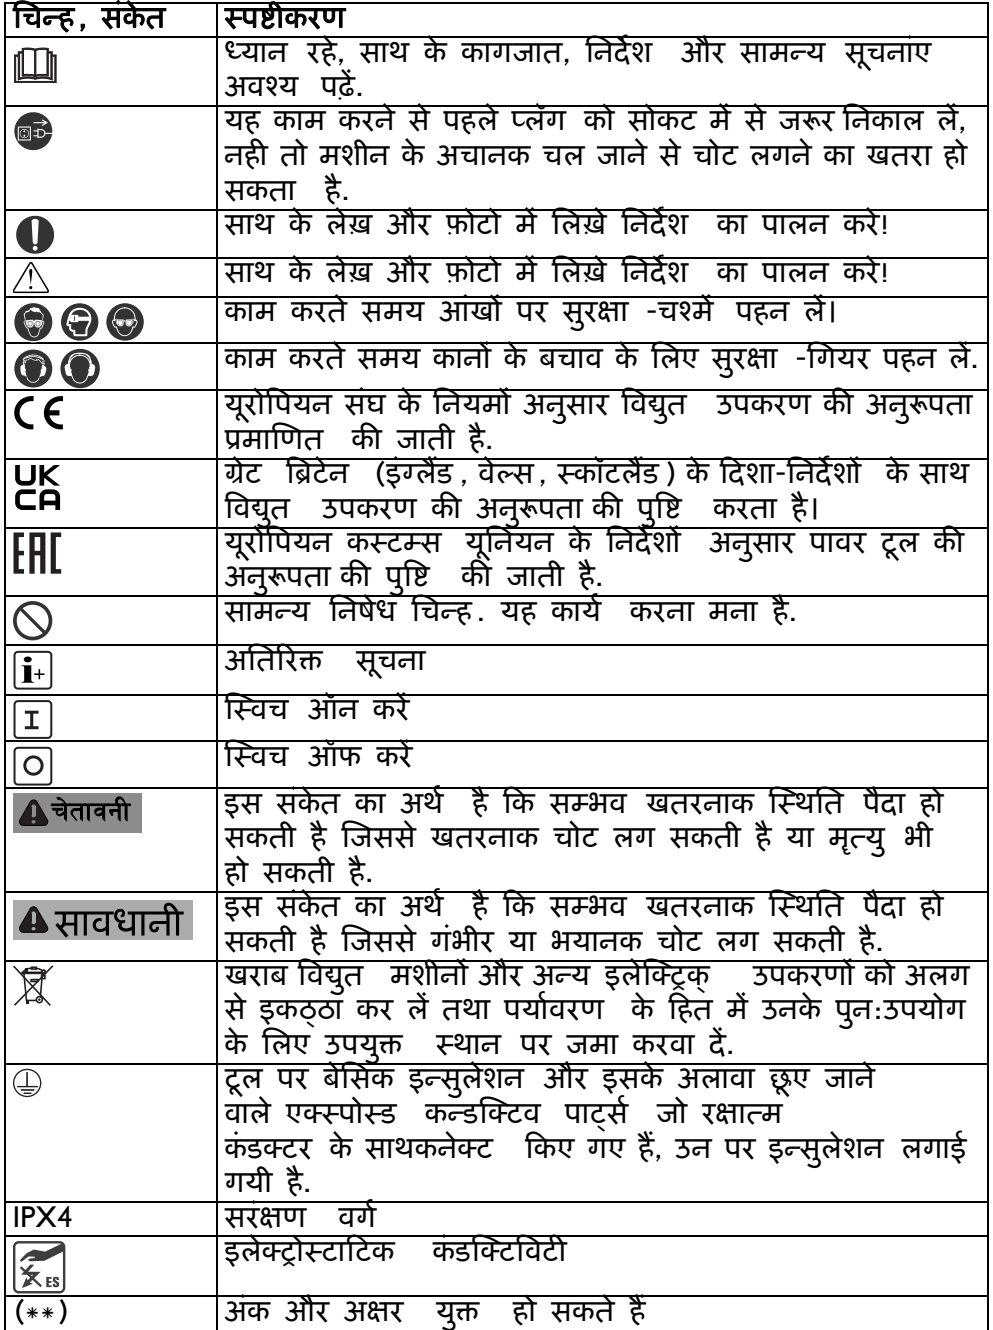 चिन्ह, संकेत स्पष्टीकरण
ध्यान रहे, साथ के कागजात, निर्देश और सामन्य सूचनांए
अवश्य पढ़ें.
यह काम करने से पहले प्लॅग को सोकट में से जरूर निकाल लें,
नही तो मशीन के अचानक चल जाने से चोट लगने का खतरा हो
सकता है.
साथ के लेख़ और फ़ोटो में लिख़े निर्देश का पालन करे!
साथ के लेख़ और फ़ोटो में लिख़े निर्देश का पालन करे!
काम करते समय आंखों पर सुरक्षा -चश्में पहन लें।
काम करते समय कानों के बचाव के लिए सुरक्षा -गियर पहन लें.
CE यूरोपियन संघ के नियमों अनुसार विद्युत उपकरण की अनुरूपता
प्रमाणित की जाती है.
UK
CA
ग्रेट ब्रिटेन (इंग्लैंड, वेल्स, स्कॉटलैंड) के दिशा-निर्देशों के साथ
विद्युत उपकरण की अनुरूपता की पुष्टि करता है।
EAC यूरोपियन कस्टम्स यूनियन के निर्देशों अनुसार पावर टूल की
अनुरूपता की पुष्टि की जाती है.
सामन्य निषेध चिन्ह. यह कार्य करना मना है.
i+ अतिरिक्त सूचना
I स्विच ऑन करें
O स्विच ऑफ करें
चेतावनी इस संकेत का अर्थ है कि सम्भव खतरनाक स्थिति पैदा हो
सकती है जिससे खतरनाक चोट लग सकती है या मृत्यु भी
हो सकती है.
सावधानी इस संकेत का अर्थ है कि सम्भव खतरनाक स्थिति पैदा हो
सकती है जिससे गंभीर या भयानक चोट लग सकती है.
खराब विद्युत मशीनों और अन्य इलेक्ट्रिक् उपकरणों को अलग
से इकठ्ठा कर लें तथा पर्यावरण के हित में उनके पुन:उपयोग
के लिए उपयुक्त स्थान पर जमा करवा दें.
टूल पर बेसिक इन्सुलेशन और इसके अलावा छूए जाने
वाले एक्स्पोस्ड कन्डक्टिव पार्ट्स जो रक्षात्म
कंडक्टर के साथकनेक्ट किए गए हैं, उन पर इन्सुलेशन लगाई
गयी है.
IPX4 सरंक्षण वर्ग
ES इलेक्ट्रोस्टाटिक कंडक्टिविटी
(**) अंक और अक्षर युक्त हो सकते हैं